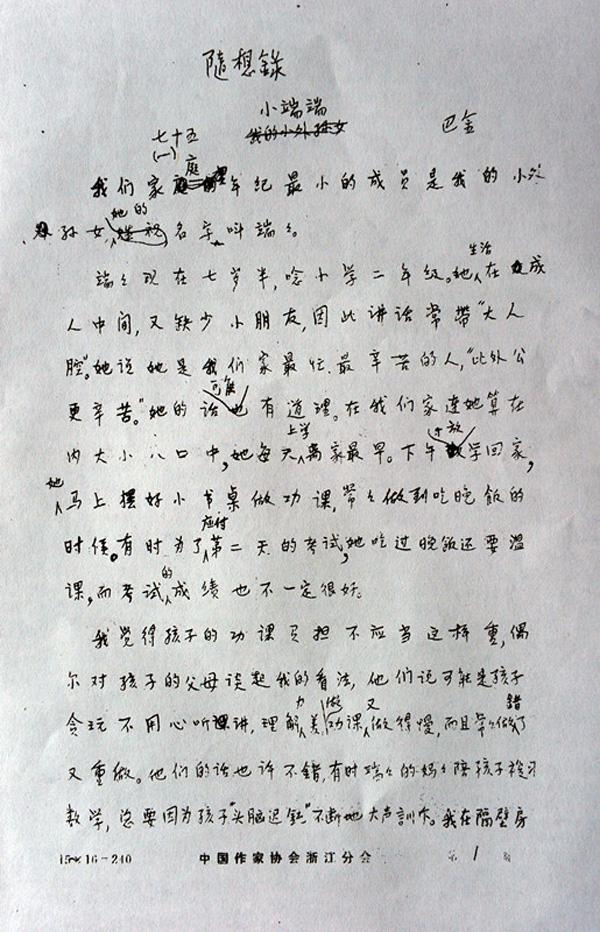 隨想錄
小端端
七十五 我的小外孙女 巴金
(一)
我们家庭里年纪最小的成员是我的小外
孙女,她的名字叫端々。
端々现在七岁半,唸小学二年级。她生活在成
人中间,又缺少小朋友,因此讲话常带“大人
腔”。她说她是我们家最忙、最辛苦的人,“比外公
更辛苦。”她的话可能也有道理。在我们家连她算在
内大小八口中,她每天上学离家最早。下午放学回家,
她马上摆好小书桌做功课,常々做到吃晚饭的
时候。有时为了应付第二天的考试,她吃过晚饭还要温
课,而考试的成绩也不一定很好。
我觉得孩子的功课负担不应当这样重,偶
尔对孩子的父母谈起我的看法,他们说可能是孩子
贪玩不用心听讲,理解力差,做功课又做得慢,而且常々做错了
又重做。他们的话也许不错,有时端々的妈々陪孩子复习
数学,总要因为孩子“头脑迟钝”不断地大声訓斥。我在隔壁房
15×16-240 中国作家协会浙江分会 第 1 页